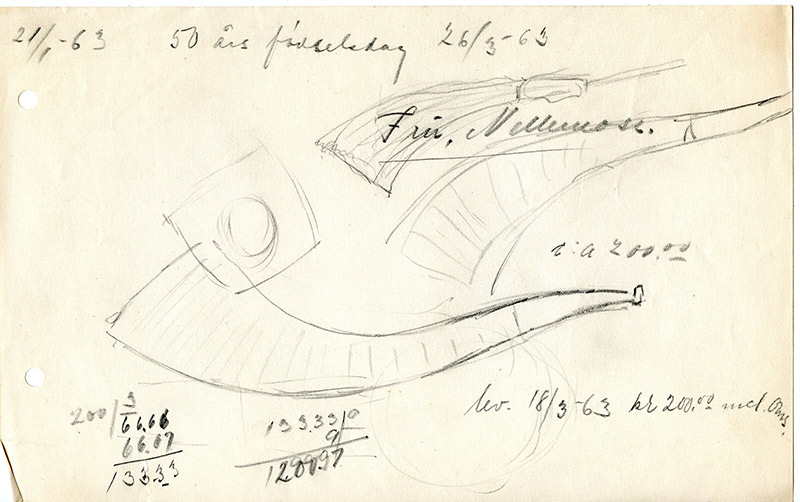 21/1-63 50 års fødselsdag 26/3-63
Fru. Nellemose.
c:a 200.00
lev. 18/3-63 kr 200.00 incl. Oms.
200/3
66.66
66.67
133.33
133.33/9
9
120.97